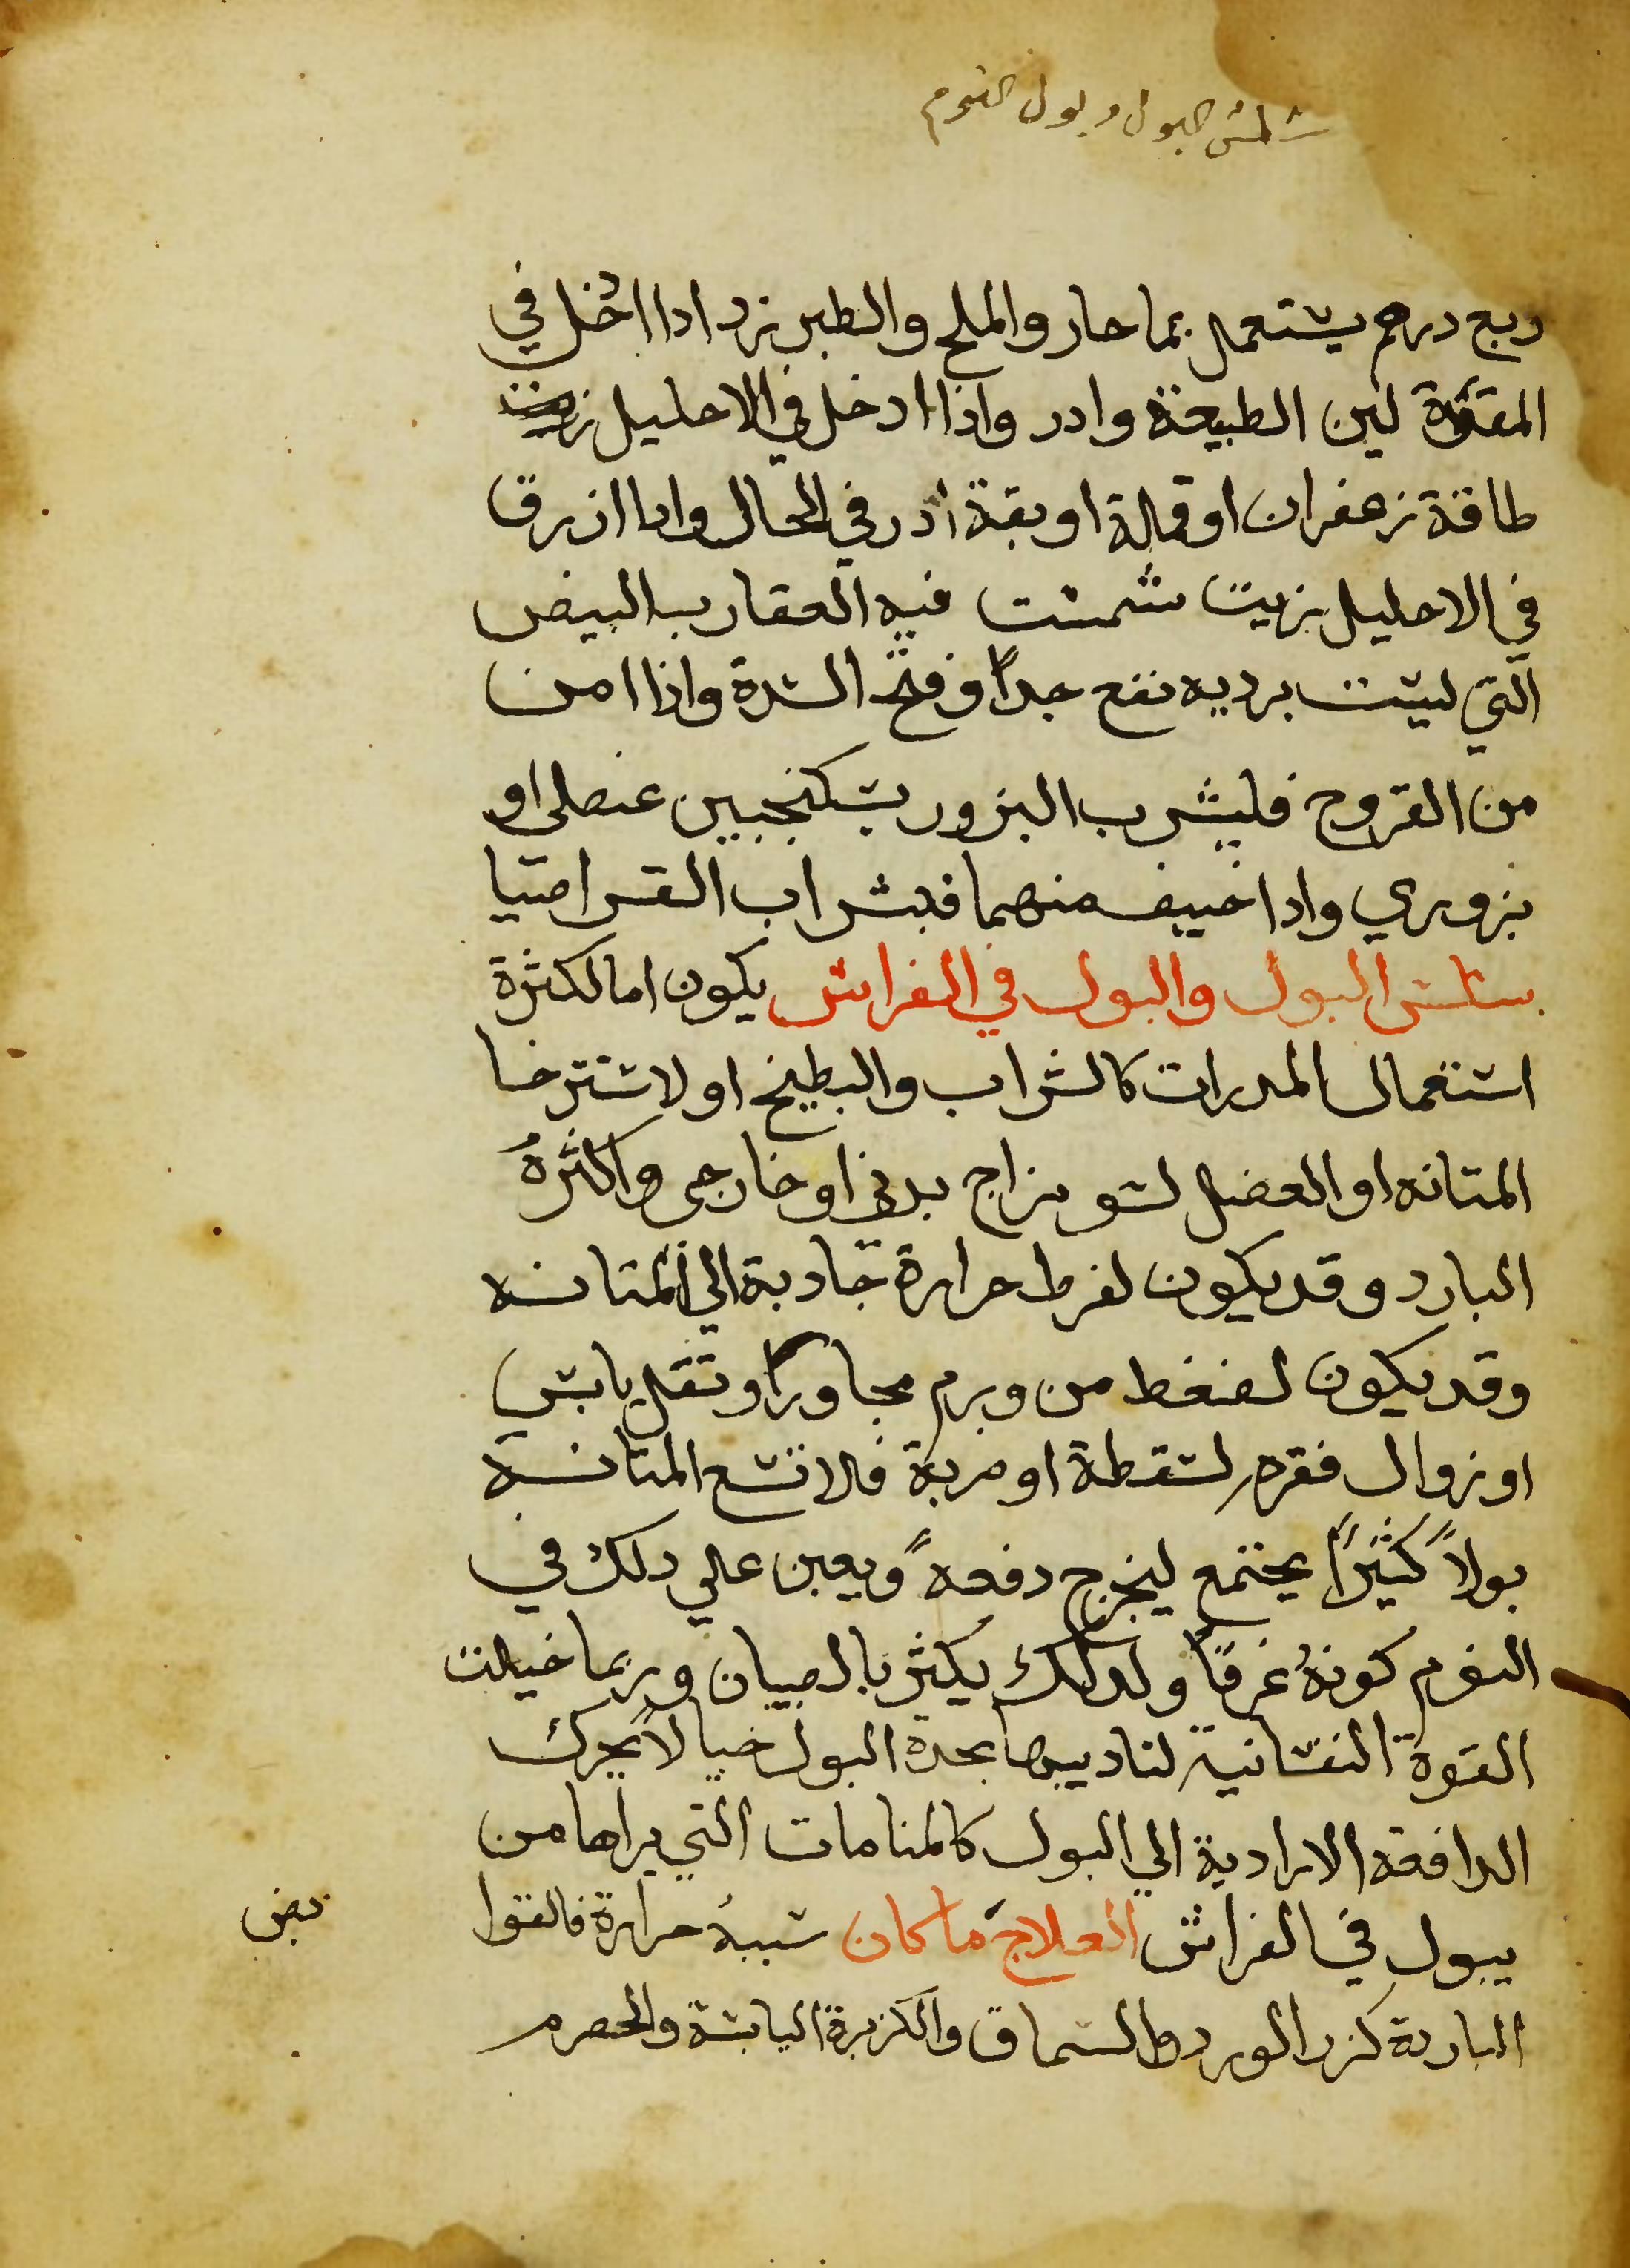 سلس البول وبول النوم
ربع درهم يستعمل بما حار والملح والطبرزد ادا ادخل في
المقعدة لين الطبيعة وادر واذا ادخل في الاحليل
طاقة زعفران او قملة او بقة أدر في الحال وادا ازرق
في الاحليل بزيت شمست فيه العقارب البيض
التي ليست بردية نفع جداً وفتح السدة واذا امن
من القروح فليشرب البزور بسكنجبين عنصلي او
بزوري وادا خيف منهما فبشراب القراصيا
سلس البول والبول في الفراش يكون اما لكثرة
استعمال المدرات كالشراب والبطيخ او لاسترخا
المتانه او العضل لسو مزاج بدني او خارجي واكثره
البارد وقد يكون لفرط حرارة جادبة الي المتانه
وقد يكون لضغط من ورم مجاور او ثقل يابس
او زوال فقره لسقطة او ضربة فلا تسع المتانة
بولاً كثيراً يجتمع ليخرج دفعةً ويعين علي دلك في
النوم كونهُ غرقاً ولدلك يكثر بالصبيان وربما خيلت
القوة النفسانية لتاديبها بحدة البول خيالاً يحرك
الدافعة الارادية الي البول كالمنامات التي يراها من
يبول في الفراش العلاج ما كان سببهُ حرارة فالقوا
بض
الباردة كزر الورد والسماق والكزبرة اليابسة والحصرم